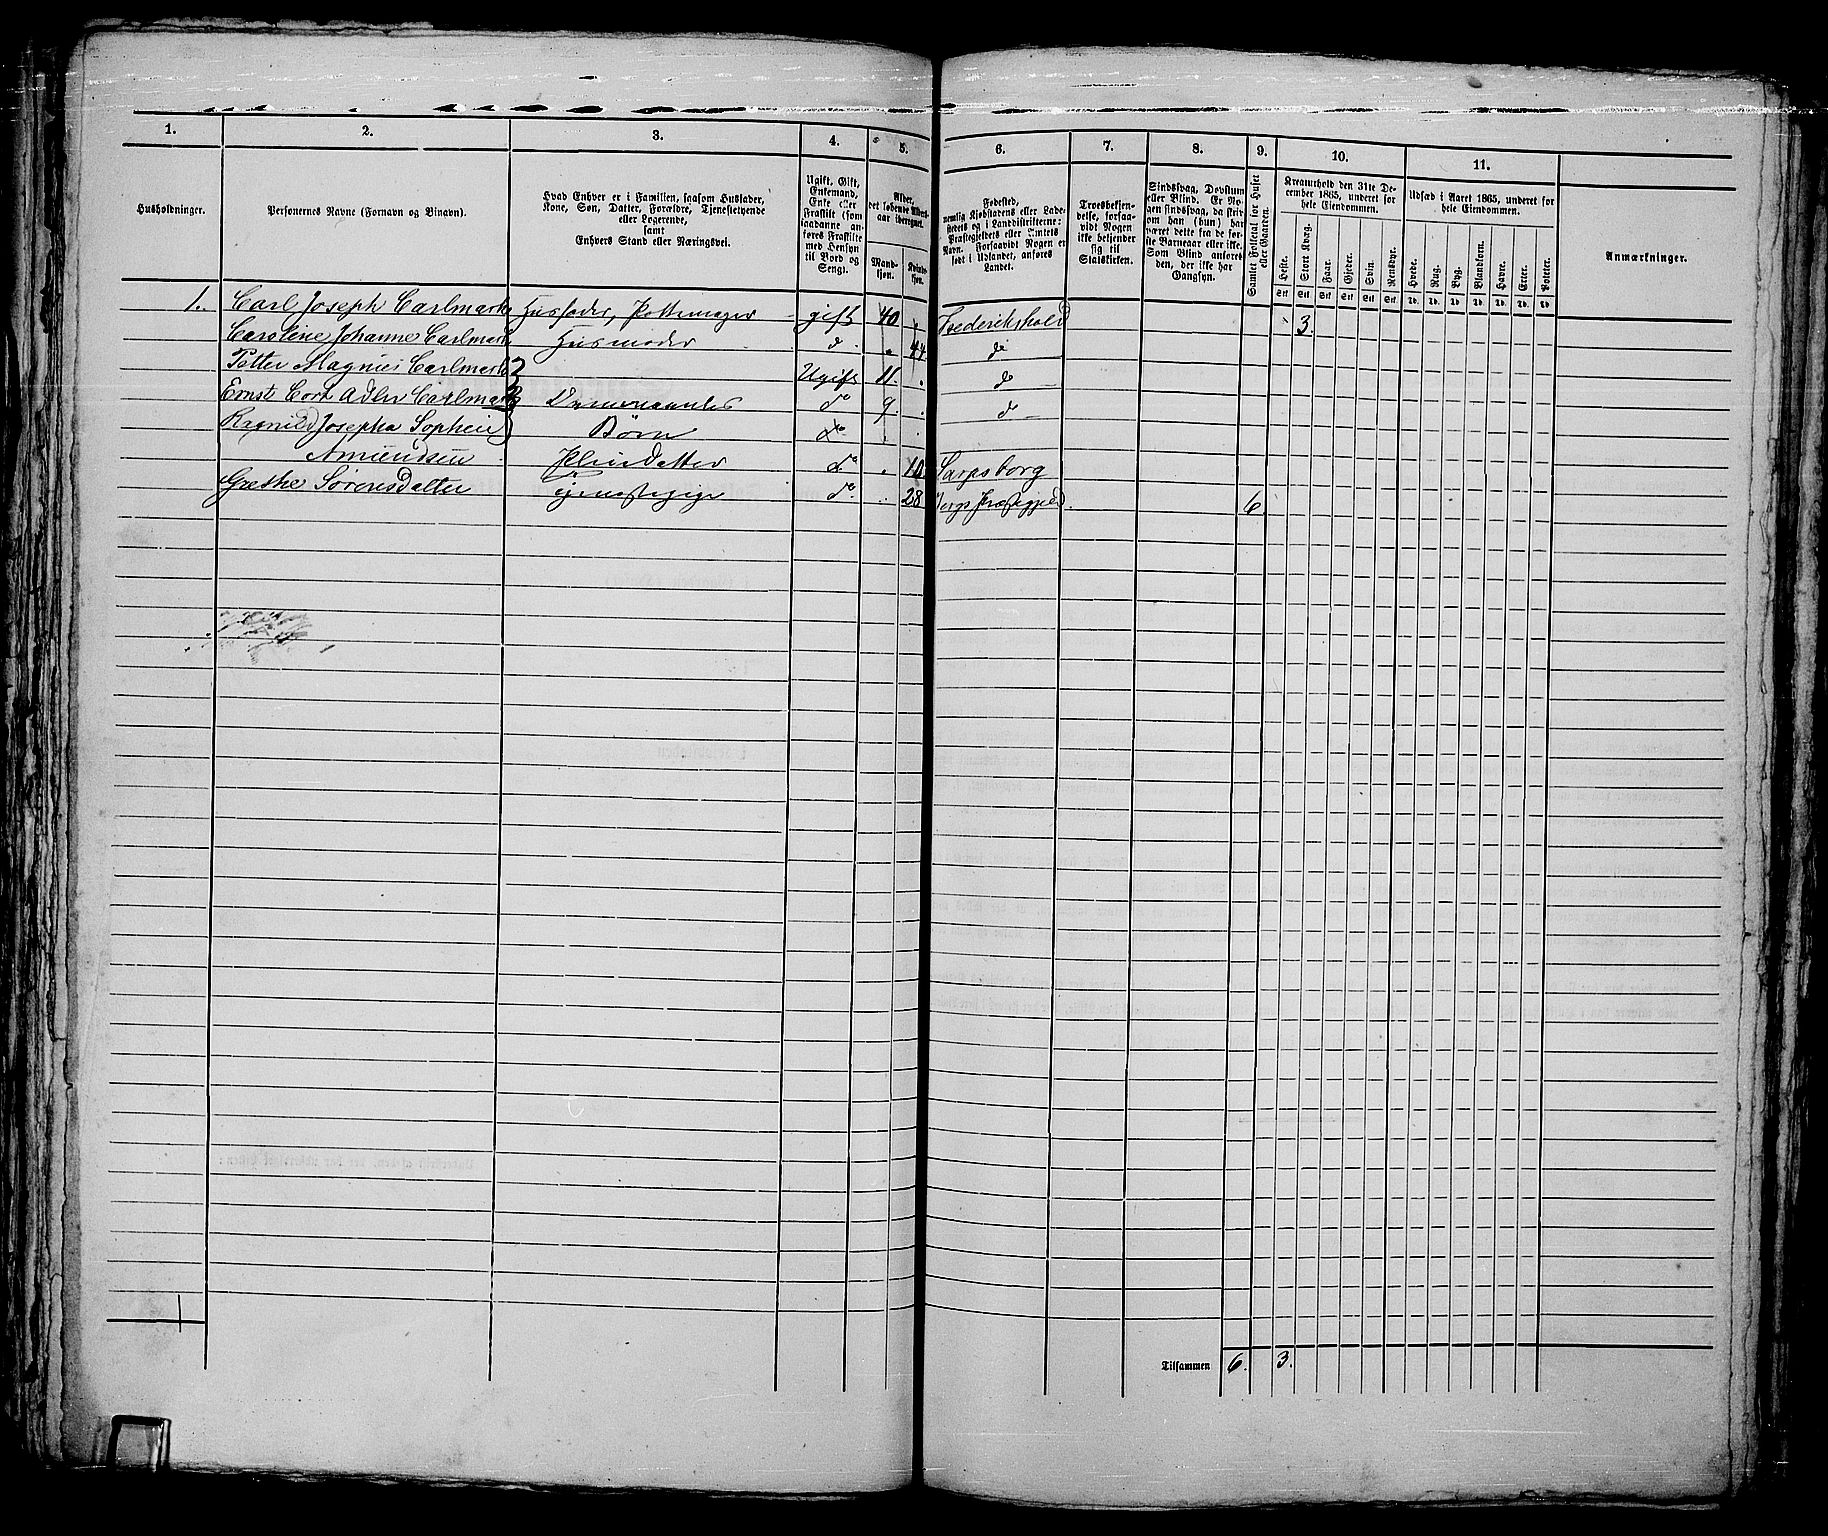 1. 2. 3. 4. 5. 6. 7. 8. 9. 10. 11.
Husholdninger.
Personernes Navne (Fornavn og Binavn).
Hvad Enhver er i Familien, saasom Husfader,
Kone, Søn, Datter, Forældre, Tjenestetyende
eller Logerende,
samt
Enhvers Stand eller Næringsvei.
Ugift, Gift,
Enkemand,
Enke eller
Fraskilt (som
saadanne an-
føres Fraskilte
med Hensyn
til Bord og
Seng).
Alder,
det løbende Alders-
aar iberegnet.
Mand-
kjøn.
Kvinde-
kjøn.
Fødested,
nemlig Kjøbstadens eller Lade-
stedets og i Landdistrikterne:
Præstegjeldets eller Amtets
Navn. Forsaavidt Nogen er
født i Udlandet, anføres
Landet.
Troesbekjen-
delse, forsaa-
vidt Nogen
ikke bekjender
sig til
Statskirken.
Sindssvag, Døvstum
eller Blind. Er No-
gen sindssvag, da skriv
om han (hun) har
været dette fra de før-
ste Barneaar eller ikke.
Som Blind anføres
den, der ikke har
Gangsyn.
Samlet Folketal for Huset
eller Gaarden.
Kreaturhold den 31te De-
cember 1865, underet for
hele Eiendommen.
Heste. Stort Kvæg. Faar. Gjeder. Svin. Rensdyr.
Stk Stk Stk Stk Stk Stk
Udsæd i Aaret 1865, underet for
hele Eiendommen.
Hvede. Rug. Byg. Blandkorn. Havre. Erter. Poteter.
Anmærkninger.
1. Carl Joseph Carlmark Husfader, Pottemager gift 40 Frederikshald 3.
Caroline Johanne Carlmark Husmoder do 44. do
Petter Magnus Carlmark Ugift 11. do
Ernst Cort Adler Carlmark do 9. do
Ragnild Josepha Sophie Børn do
Amundsen Pleiedatter do 10 Sarpsborg
Grethe Sørensdatter Tjenestepige do 28 Præstegjeld. 6
Tilsammen 6. 3.